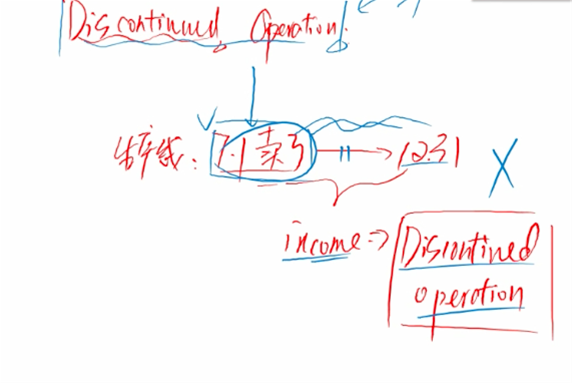 Discontinued Operation.
生产线: 7.1 卖了 → 12.31 X
income ⇒ Discontined
operation